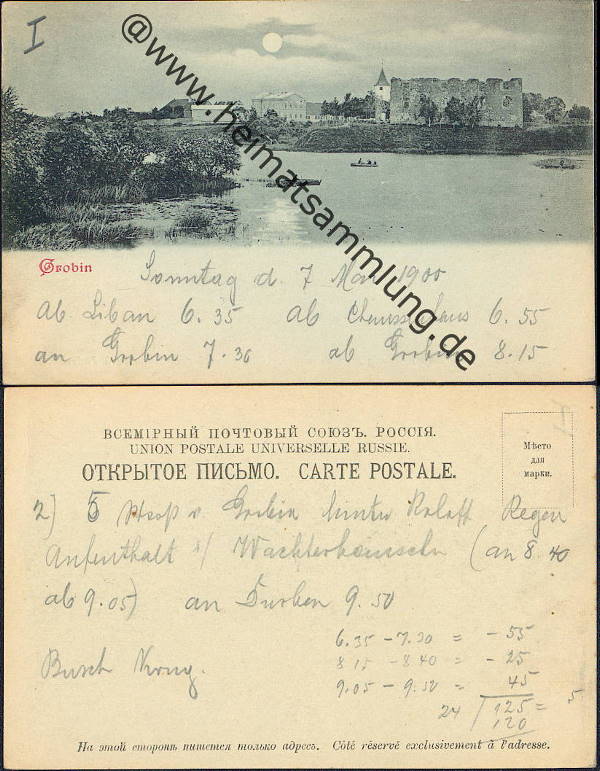 I
@www.heimatsammlung.de
Grobin
Sonntag d. 7 Mai 1900
ab Libau 6.35 ab Chausseehaus 6.55
an Grobin 7.30 ab Grobin 8.15
ВСЕМІРНЫЙ ПОЧТОВЫЙ СОЮЗЪ. РОССІЯ.
UNION POSTALE UNIVERSELLE RUSSIE.
ОТКРЫТОЕ ПИСЬМО. CARTE POSTALE.
Мѣсто
для
марки.
2) 5 v. Grobin hinter Regen
Aufenthalt (an 8.40
ab 9.05) an Durben 9.50
6.35 - 7.30 = - 55
8.15 - 8.40 = - 25
Busch Krug.
9.05 - 9.50 = 45
24 / 125 = 5
120
На этой сторонѣ пишется только адресъ. Côté réservé exclusivement à l'adresse.